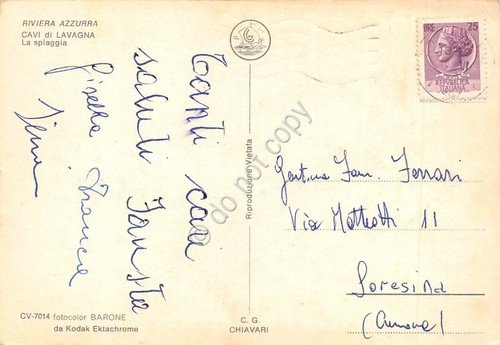 RIVIERA AZZURRA
CAVI di LAVAGNA
La spiaggia
Tanti cari
saluti Fausta
Gisella Franca
CV-7014 fotocolor BARONE
da Kodak Ektachrome
Riproduzione Vietata
C. G.
CHIAVARI
do not copy
LIRE 25
REPUBBLICA
ITALIANA
Gent.ma Fam. Ferrari
Via Matteotti 11
Soresina
(Cremona)